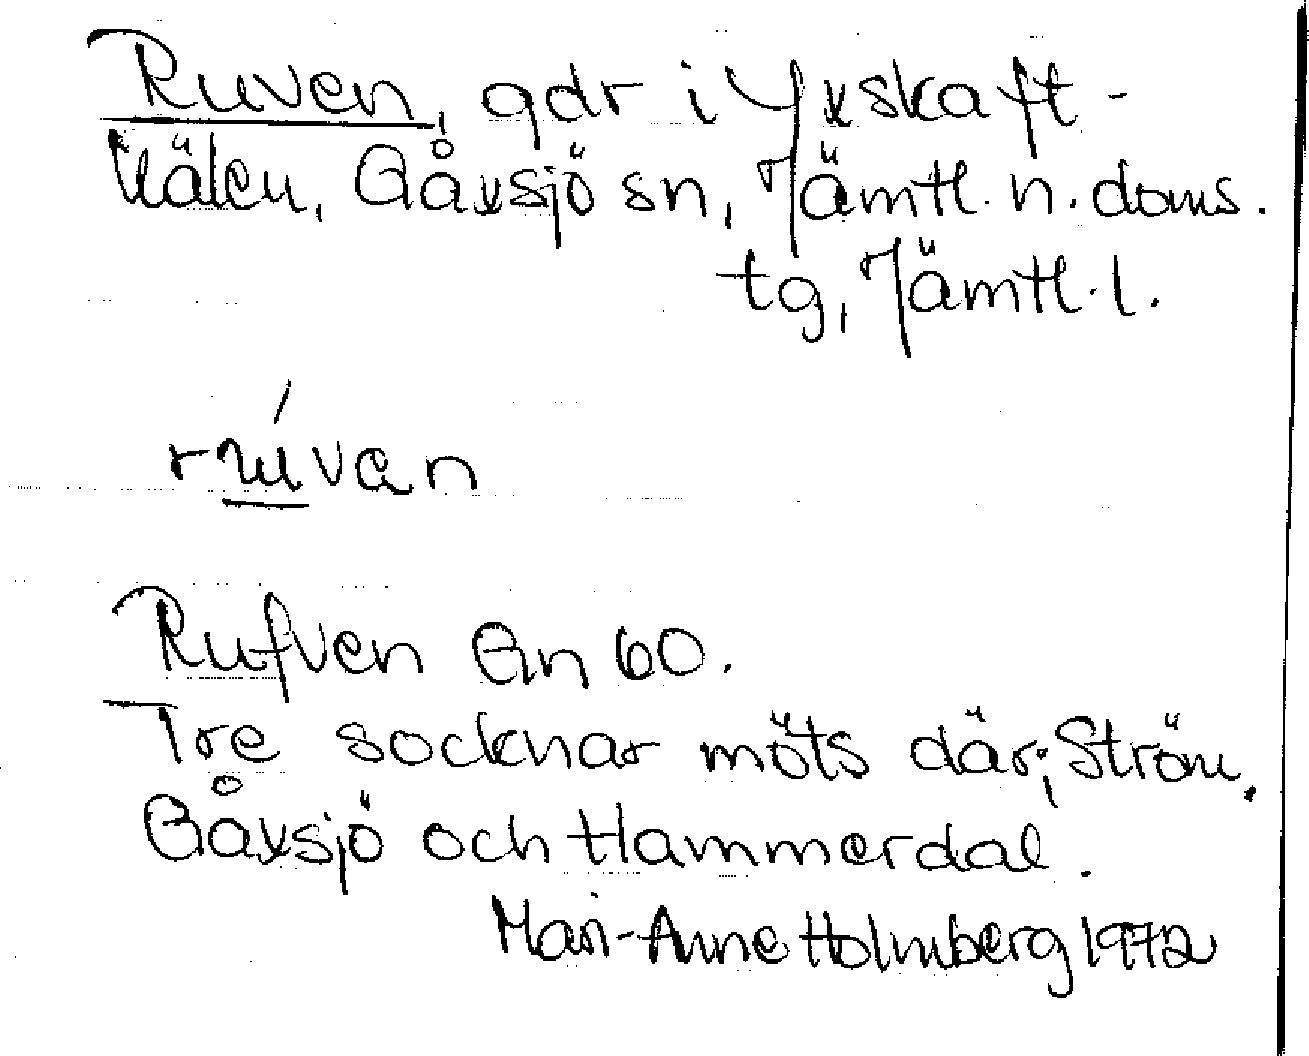 Ruven, gdr i Yxskaft-
kälen, Gåxsjö sn, Jämtl. n. doms.
tg, Jämtl. l.
rúvan
Rufven Gn 60.
Tre socknar möts där; Ström,
Gåxsjö och Hammerdal.
Mari-Anne Holmberg 1972